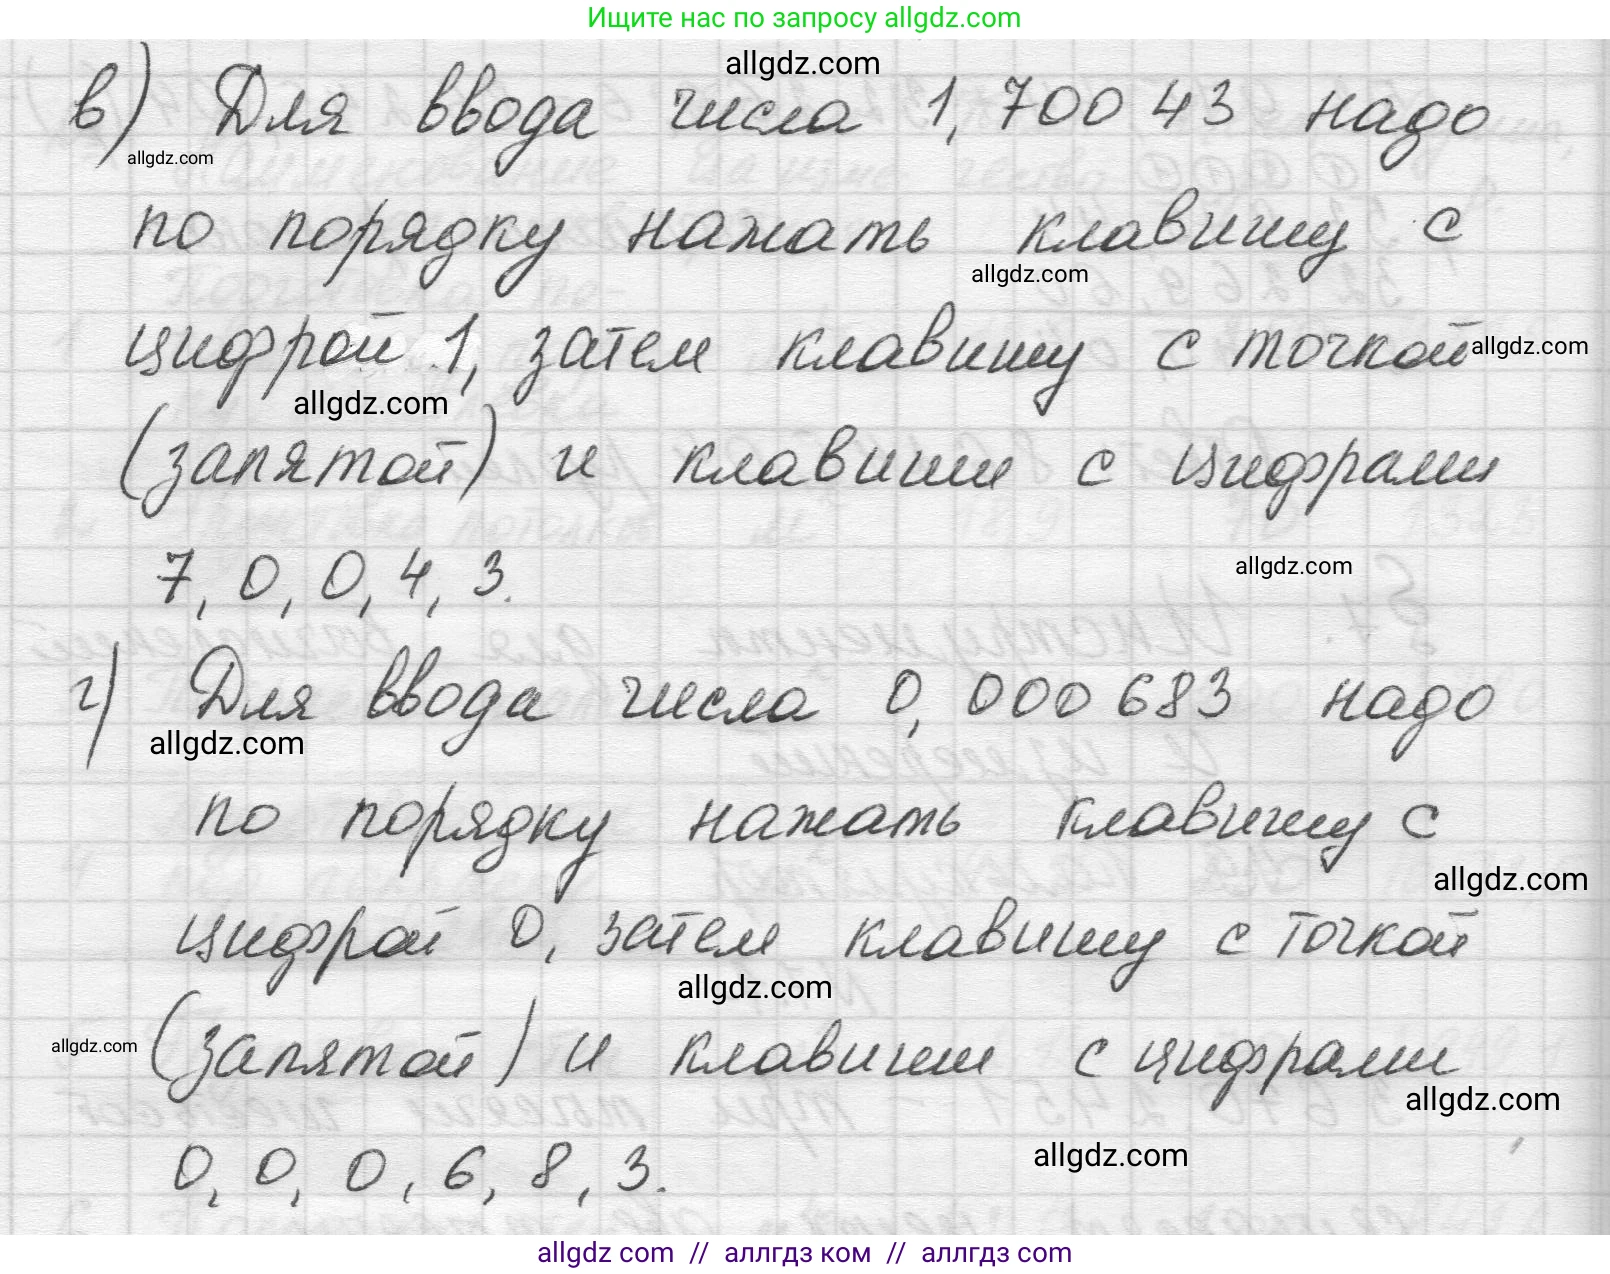 Ищите нас по запросу allgdz.com
allgdz.com
в) Для ввода числа 1,70043 надо
allgdz.com
по порядку нажать клавишу с
allgdz.com
цифрой 1, затем клавишу с точкой
allgdz.com
allgdz.com
(запятой) и клавиши с цифрами
7, 0, 0, 4, 3.
allgdz.com
г) Для ввода числа 0,000683 надо
allgdz.com
по порядку нажать клавишу с
allgdz.com
цифрой 0, затем клавишу с точкой
allgdz.com
allgdz.com
(запятой) и клавиши с цифрами
allgdz.com
0, 0, 0, 6, 8, 3.
allgdz.com
allgdz com // аллгдз ком // аллгдз com